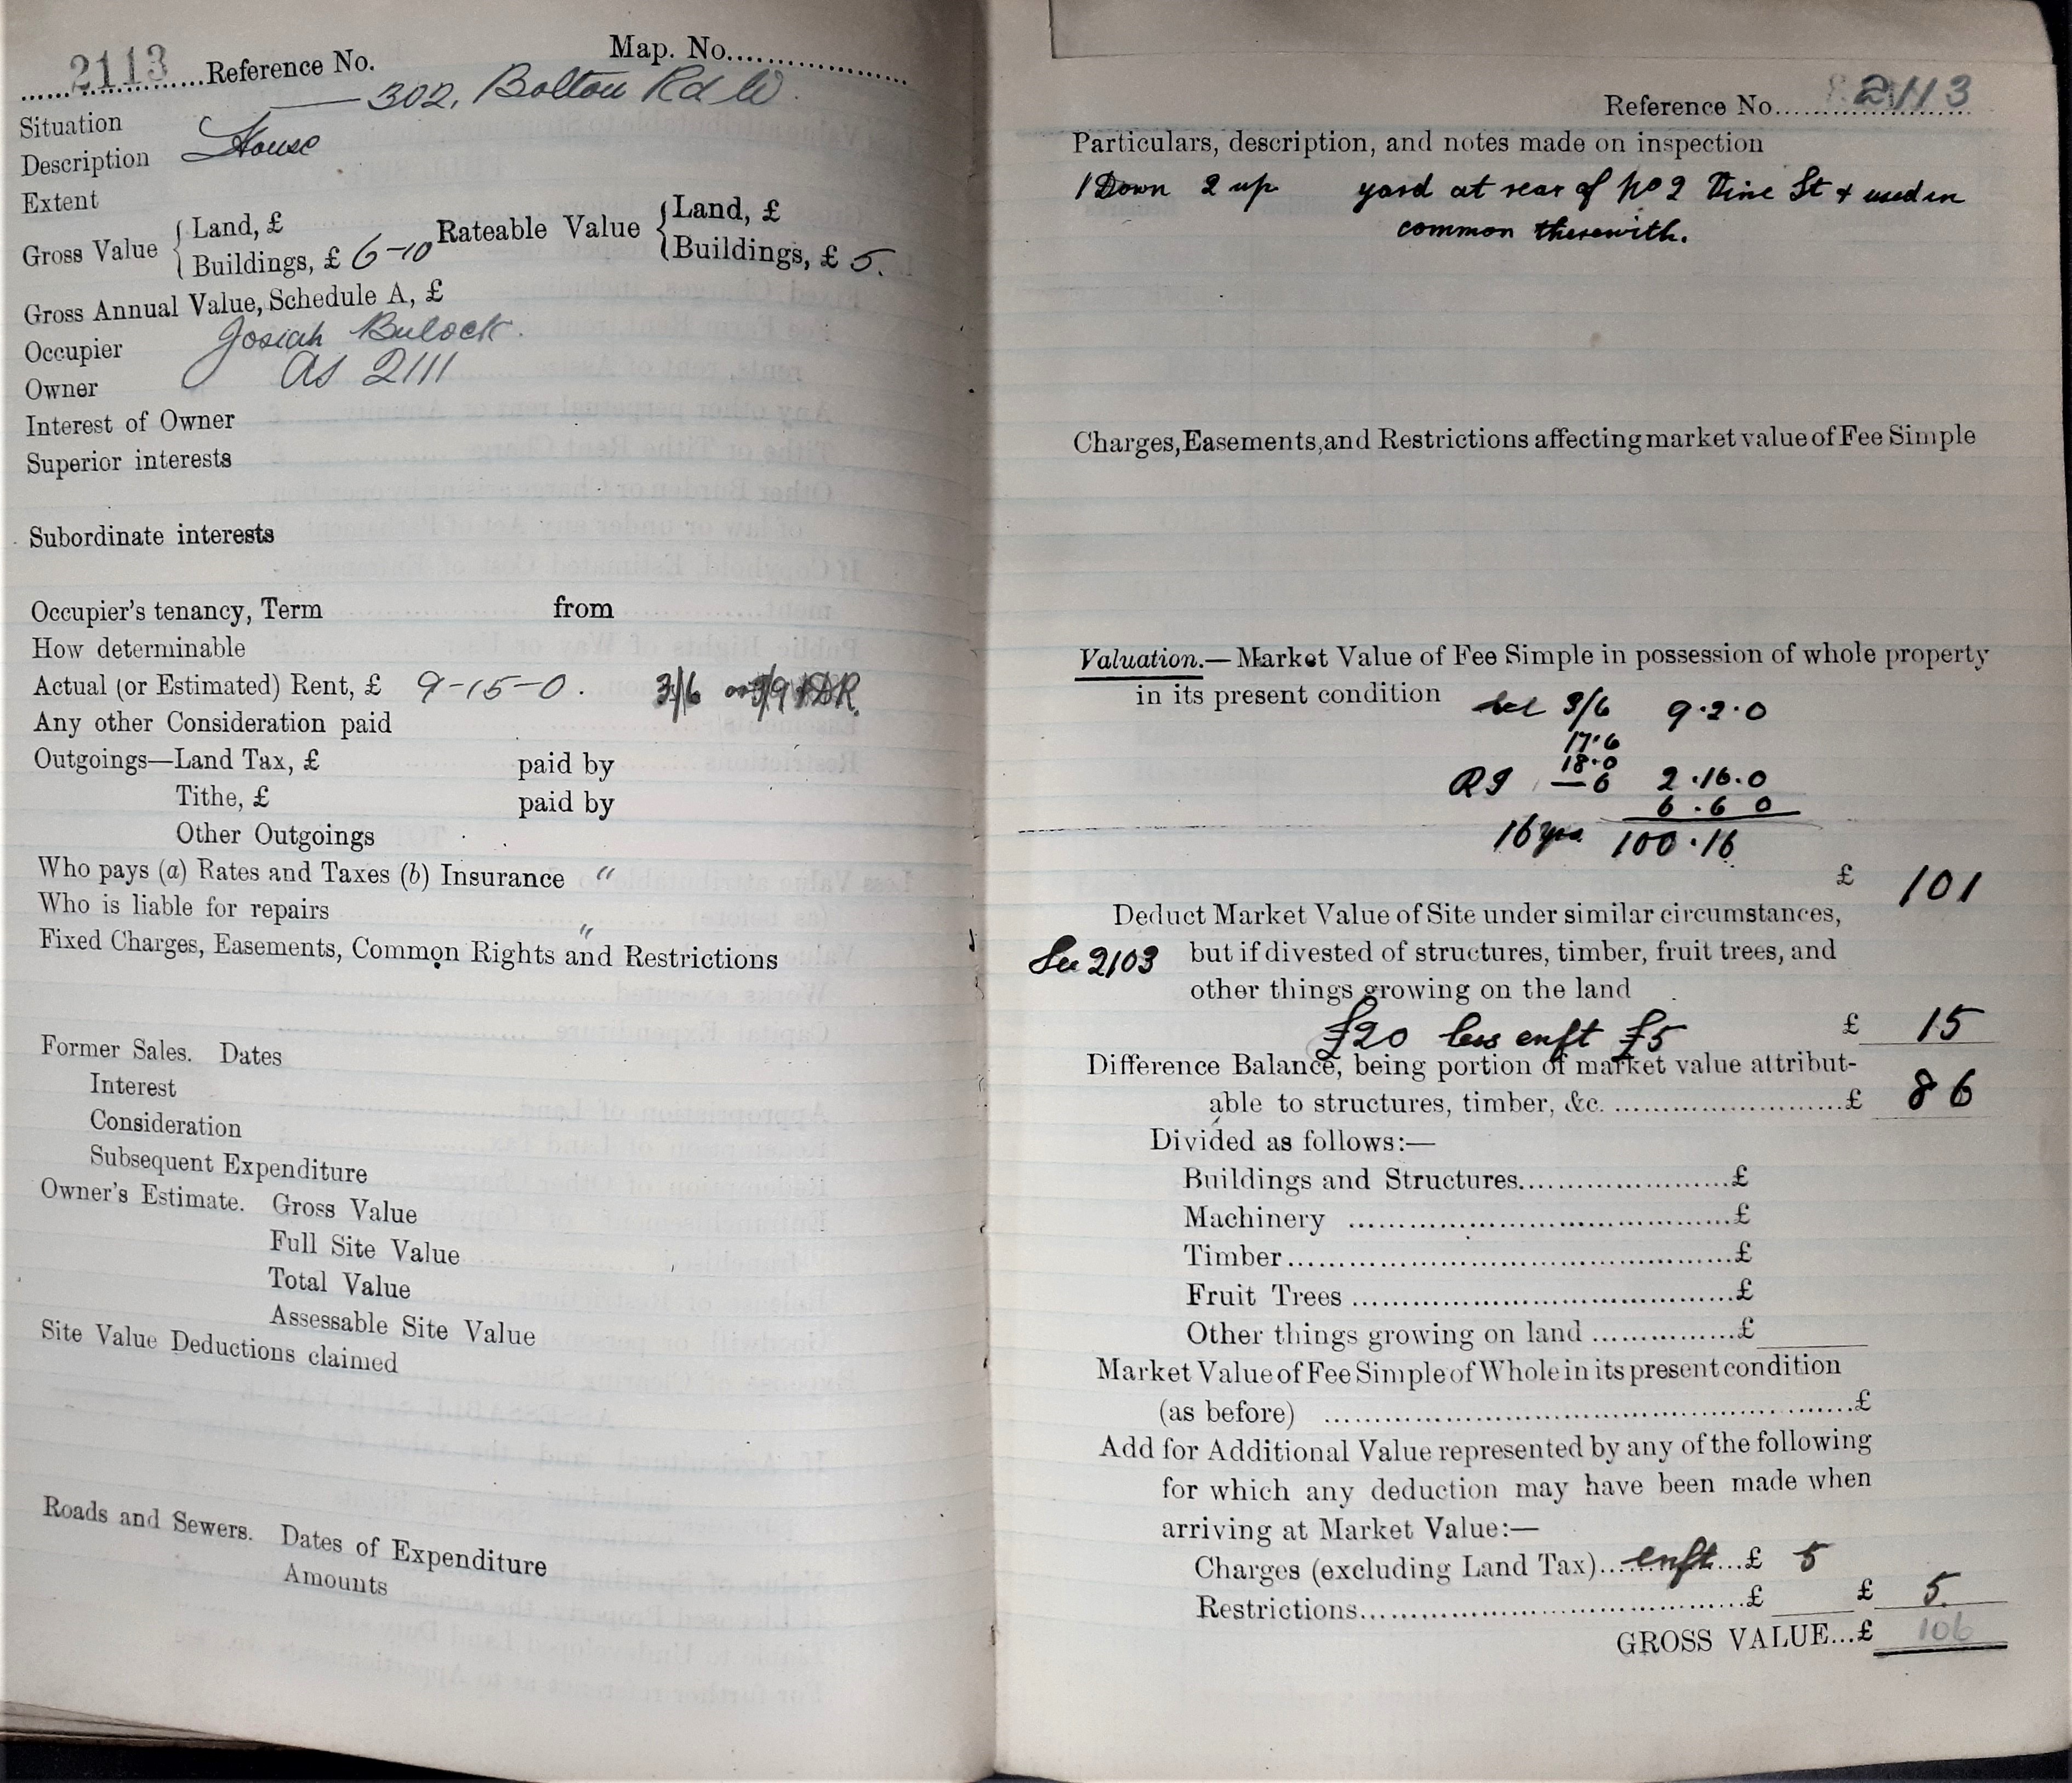 2113 Reference No. Map. No.
Situation — 302, Bolton Rd W.
Description House
Extent
Gross Value { Land, £ Rateable Value { Land, £
Buildings, £ 6-10 Buildings, £ 5.
Gross Annual Value, Schedule A, £
Occupier Josiah Bulock.
Owner as 2111
Interest of Owner
Superior interests
Subordinate interests
Occupier's tenancy, Term from
How determinable
Actual (or Estimated) Rent, £ 9-15-0. 3/6
Any other Consideration paid
Outgoings—Land Tax, £ paid by
Tithe, £ paid by
Other Outgoings
Who pays (a) Rates and Taxes (b) Insurance "
Who is liable for repairs "
Fixed Charges, Easements, Common Rights and Restrictions
Former Sales. Dates
Interest
Consideration
Subsequent Expenditure
Owner's Estimate. Gross Value
Full Site Value
Total Value
Assessable Site Value
Site Value Deductions claimed
Roads and Sewers. Dates of Expenditure
Amounts
Reference No. 2113
Particulars, description, and notes made on inspection
1 Down 2 up yard at rear of No 2 Vine St + used in
common therewith.
Charges, Easements, and Restrictions affecting market value of Fee Simple
Valuation.— Market Value of Fee Simple in possession of whole property
in its present condition 3/6 9.2.0
17.6
18.0
—6 2.16.0
6.6 0
16 yrs 100.16
£ 101
Deduct Market Value of Site under similar circumstances,
See 2103 but if divested of structures, timber, fruit trees, and
other things growing on the land
£20 less enft £5 £ 15
Difference Balance, being portion of market value attribut-
able to structures, timber, &c. £ 86
Divided as follows:—
Buildings and Structures £
Machinery £
Timber £
Fruit Trees £
Other things growing on land £
Market Value of Fee Simple of Whole in its present condition
(as before) £
Add for Additional Value represented by any of the following
for which any deduction may have been made when
arriving at Market Value:—
Charges (excluding Land Tax) enft £ 5
Restrictions £ £ 5.
GROSS VALUE...£ 106